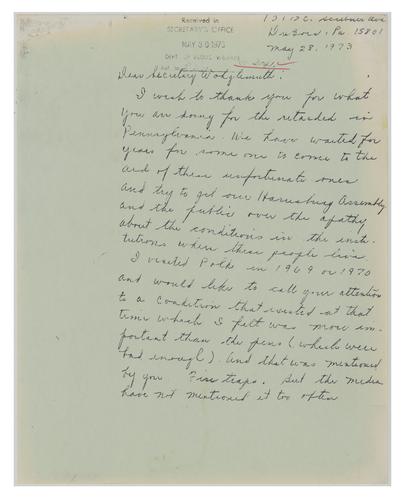 Received in
SECRETARY'S OFFICE
MAY 30 1973
DEPT. OF PUBLIC WELFARE
Scribner Ave
DuBois, Pa. 15801
May 28, 1973
Dear Secretary Wohlgemuth:
I wish to thank you for what
you are doing for the retarded in
Pennsylvania. We have waited for
years for some one to come to the
aid of these unfortunate ones
and try to get our Harrisburg Assembly
and the public over the apathy
about the conditions in the insti-
tutions where these people live.
I visited Polk in 1969 or 1970
and would like to call your attention
to a condition that existed at that
time which I felt was more im-
portant than the pens (which were
bad enough). And that was mentioned
by you Fire traps. But the media
have not mentioned it too often